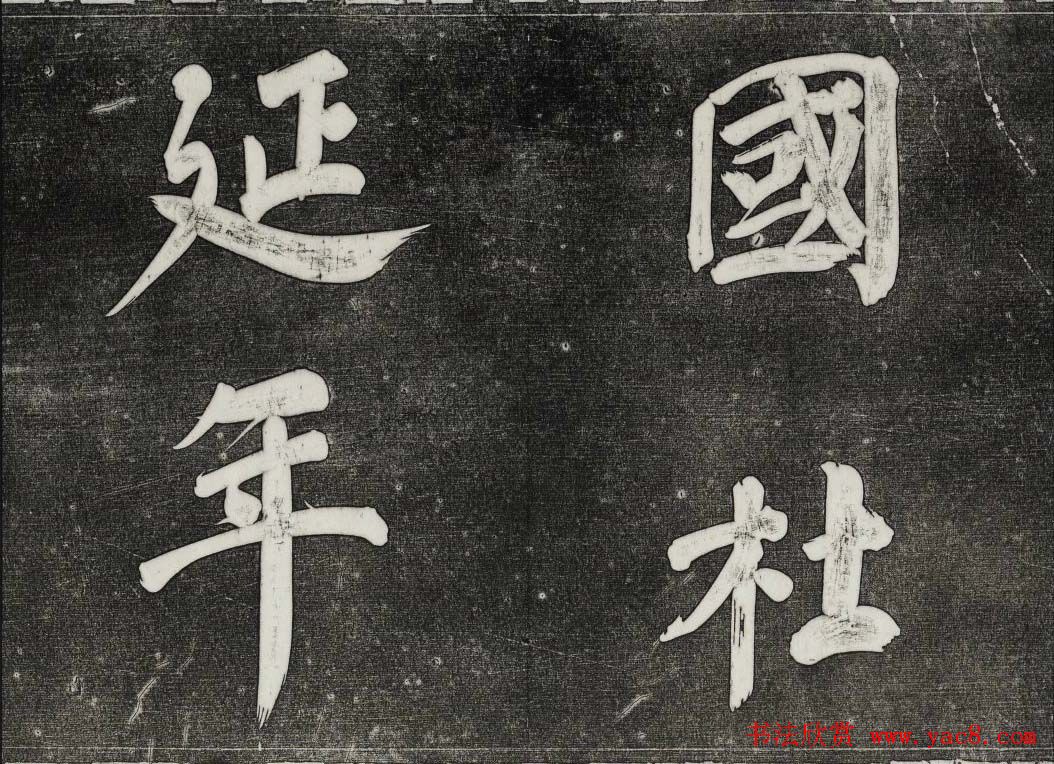 國杜
延年
书法欣赏 www.yac8.com